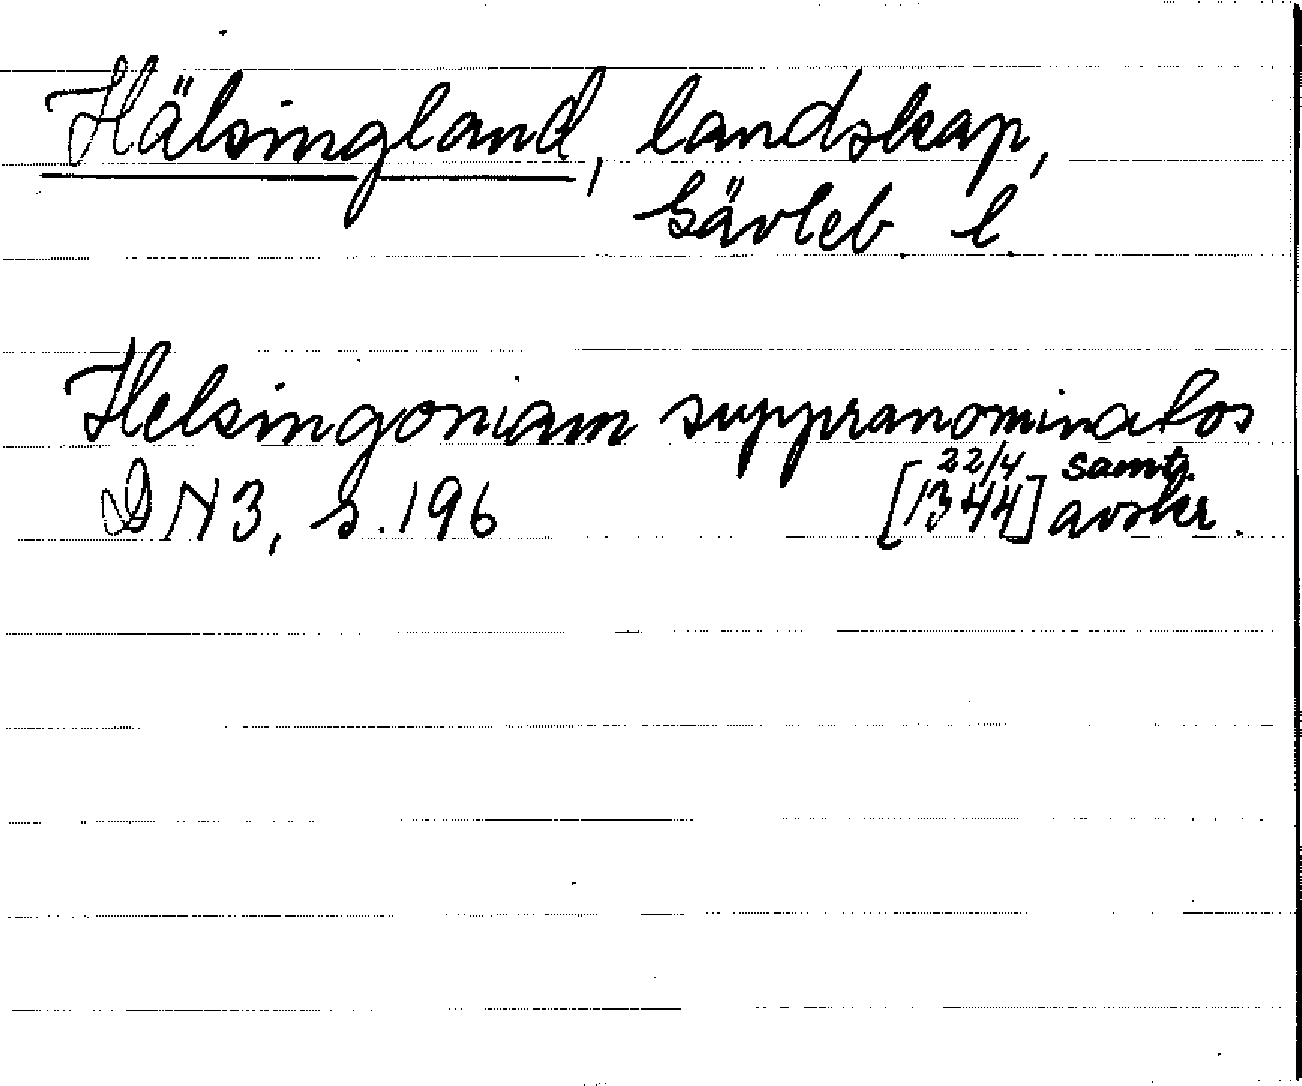 Hälsingland, landskap,
Gävleb. l.
Helsingoniam suppranominatos
DN3, s. 196 [22/4 1344] samt. avskr.